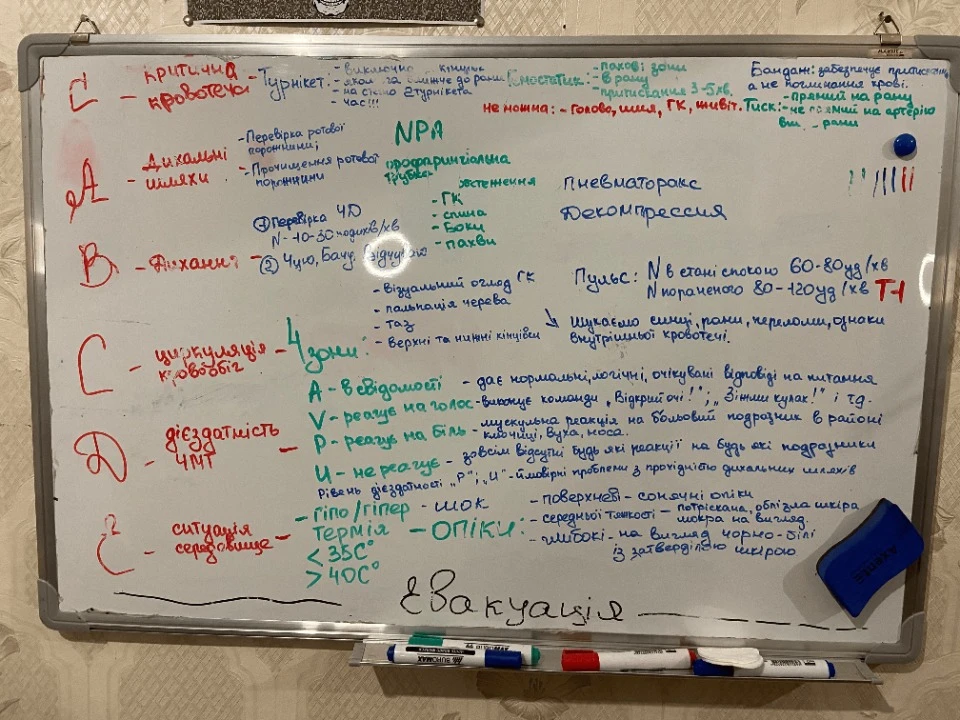 C - критична кровотеча
Турнікет: - виключно кінцівк
- якомога ближче до рани
- на стегно 2 турнікета
- час!!!
Гемостатик: - пахові зони
- в рану
- притискання 3-5хв.
не можна: - голова, шия, ГК, живіт.
Бандаж: забезпечує притискання,
а не поглинання крові.
Тиск: - прямий на рану
- не прямий на артерію
рани
A - Дихальні шляхи
- Перевірка ротової порожнини;
- Прочищення ротової порожнини
NPA
трубка
B - Дихання
① Перевірка ЧД
N - 10-30 подихів/хв
② Чую, Бачу, Відчуваю
обстеження
- ГК
- спина
- Боки
- пахви
Пневматоракс
Декомпрессия
C - циркуляція кровообіг - 4 зони:
- візуальний огляд ГК
- пальпація черева
- таз
- верхні та нижні кінцівки
Пульс: N в стані спокою 60-80 уд/хв
N пораненого 80-120 уд/хв
Шукаємо синці, рани, переломи, ознаки
внутрішньої кровотечі.
D - дієздатність ЧМТ -
A - в свідомості - дає нормальні, логічні, очікувані відповіді на питання
V - реагує на голос - виконує команди „Відкрий очі!"; „Зіжми кулак!" і т.д.
P - реагує на біль - мускульна реакція на больовий подразник в районі
ключиці, вуха, носа.
U - не реагує - зовсім відсутні будь які реакції на будь які подразники
Рівень дієздатності „P"; „U" - ймовірні проблеми з прохідністю дихальних шляхів
C² - ситуація середовище -
- гіпо/гіпер - шок
термія - ОПІКИ:
< 35С°
> 40С°
- поверхневі - сонячні опіки
- середньої тяжкості - потріскана, облізла шкіра
мокра на вигляд.
- глибокі - на вигляд чорно-білі
із затверділою шкірою
Евакуація
BUROMAX
Axent